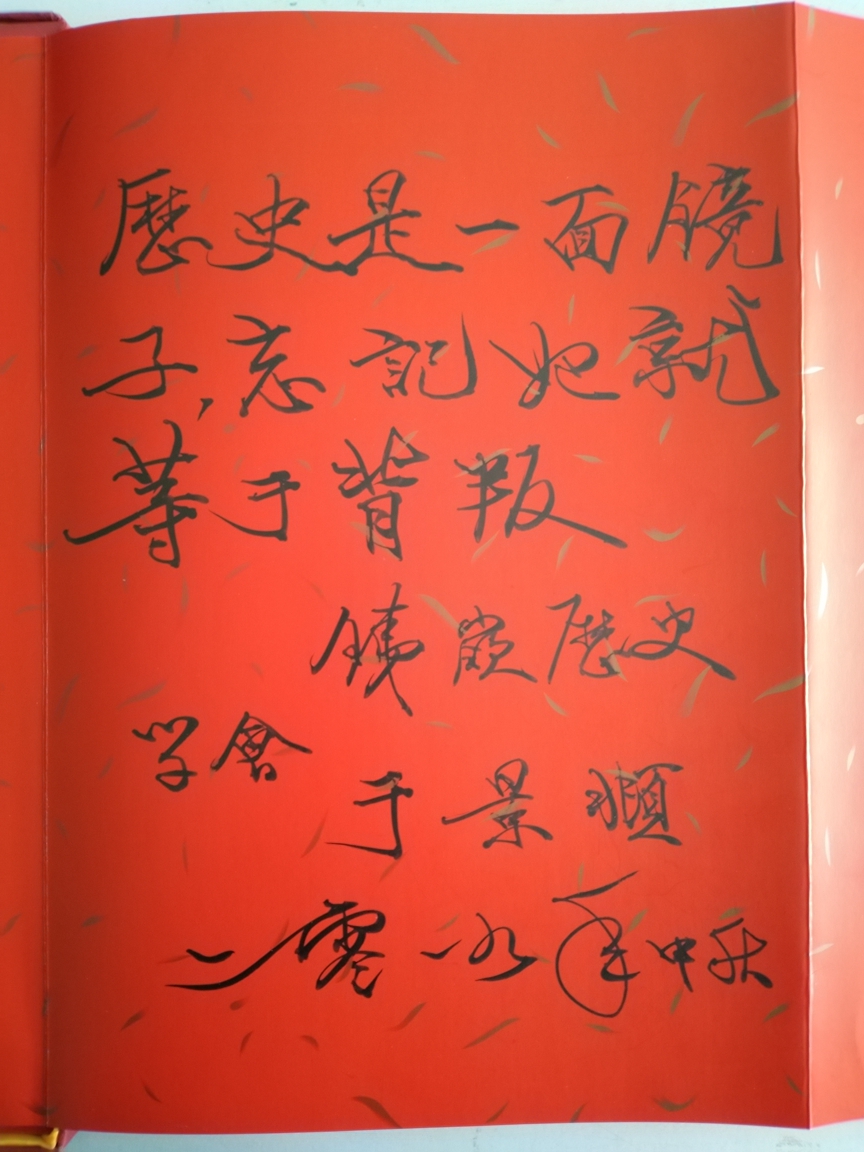 歷史是一面鏡
子,忘記她就
等于背叛
銕嶺歷史
学會
于景
二零一九年中秋